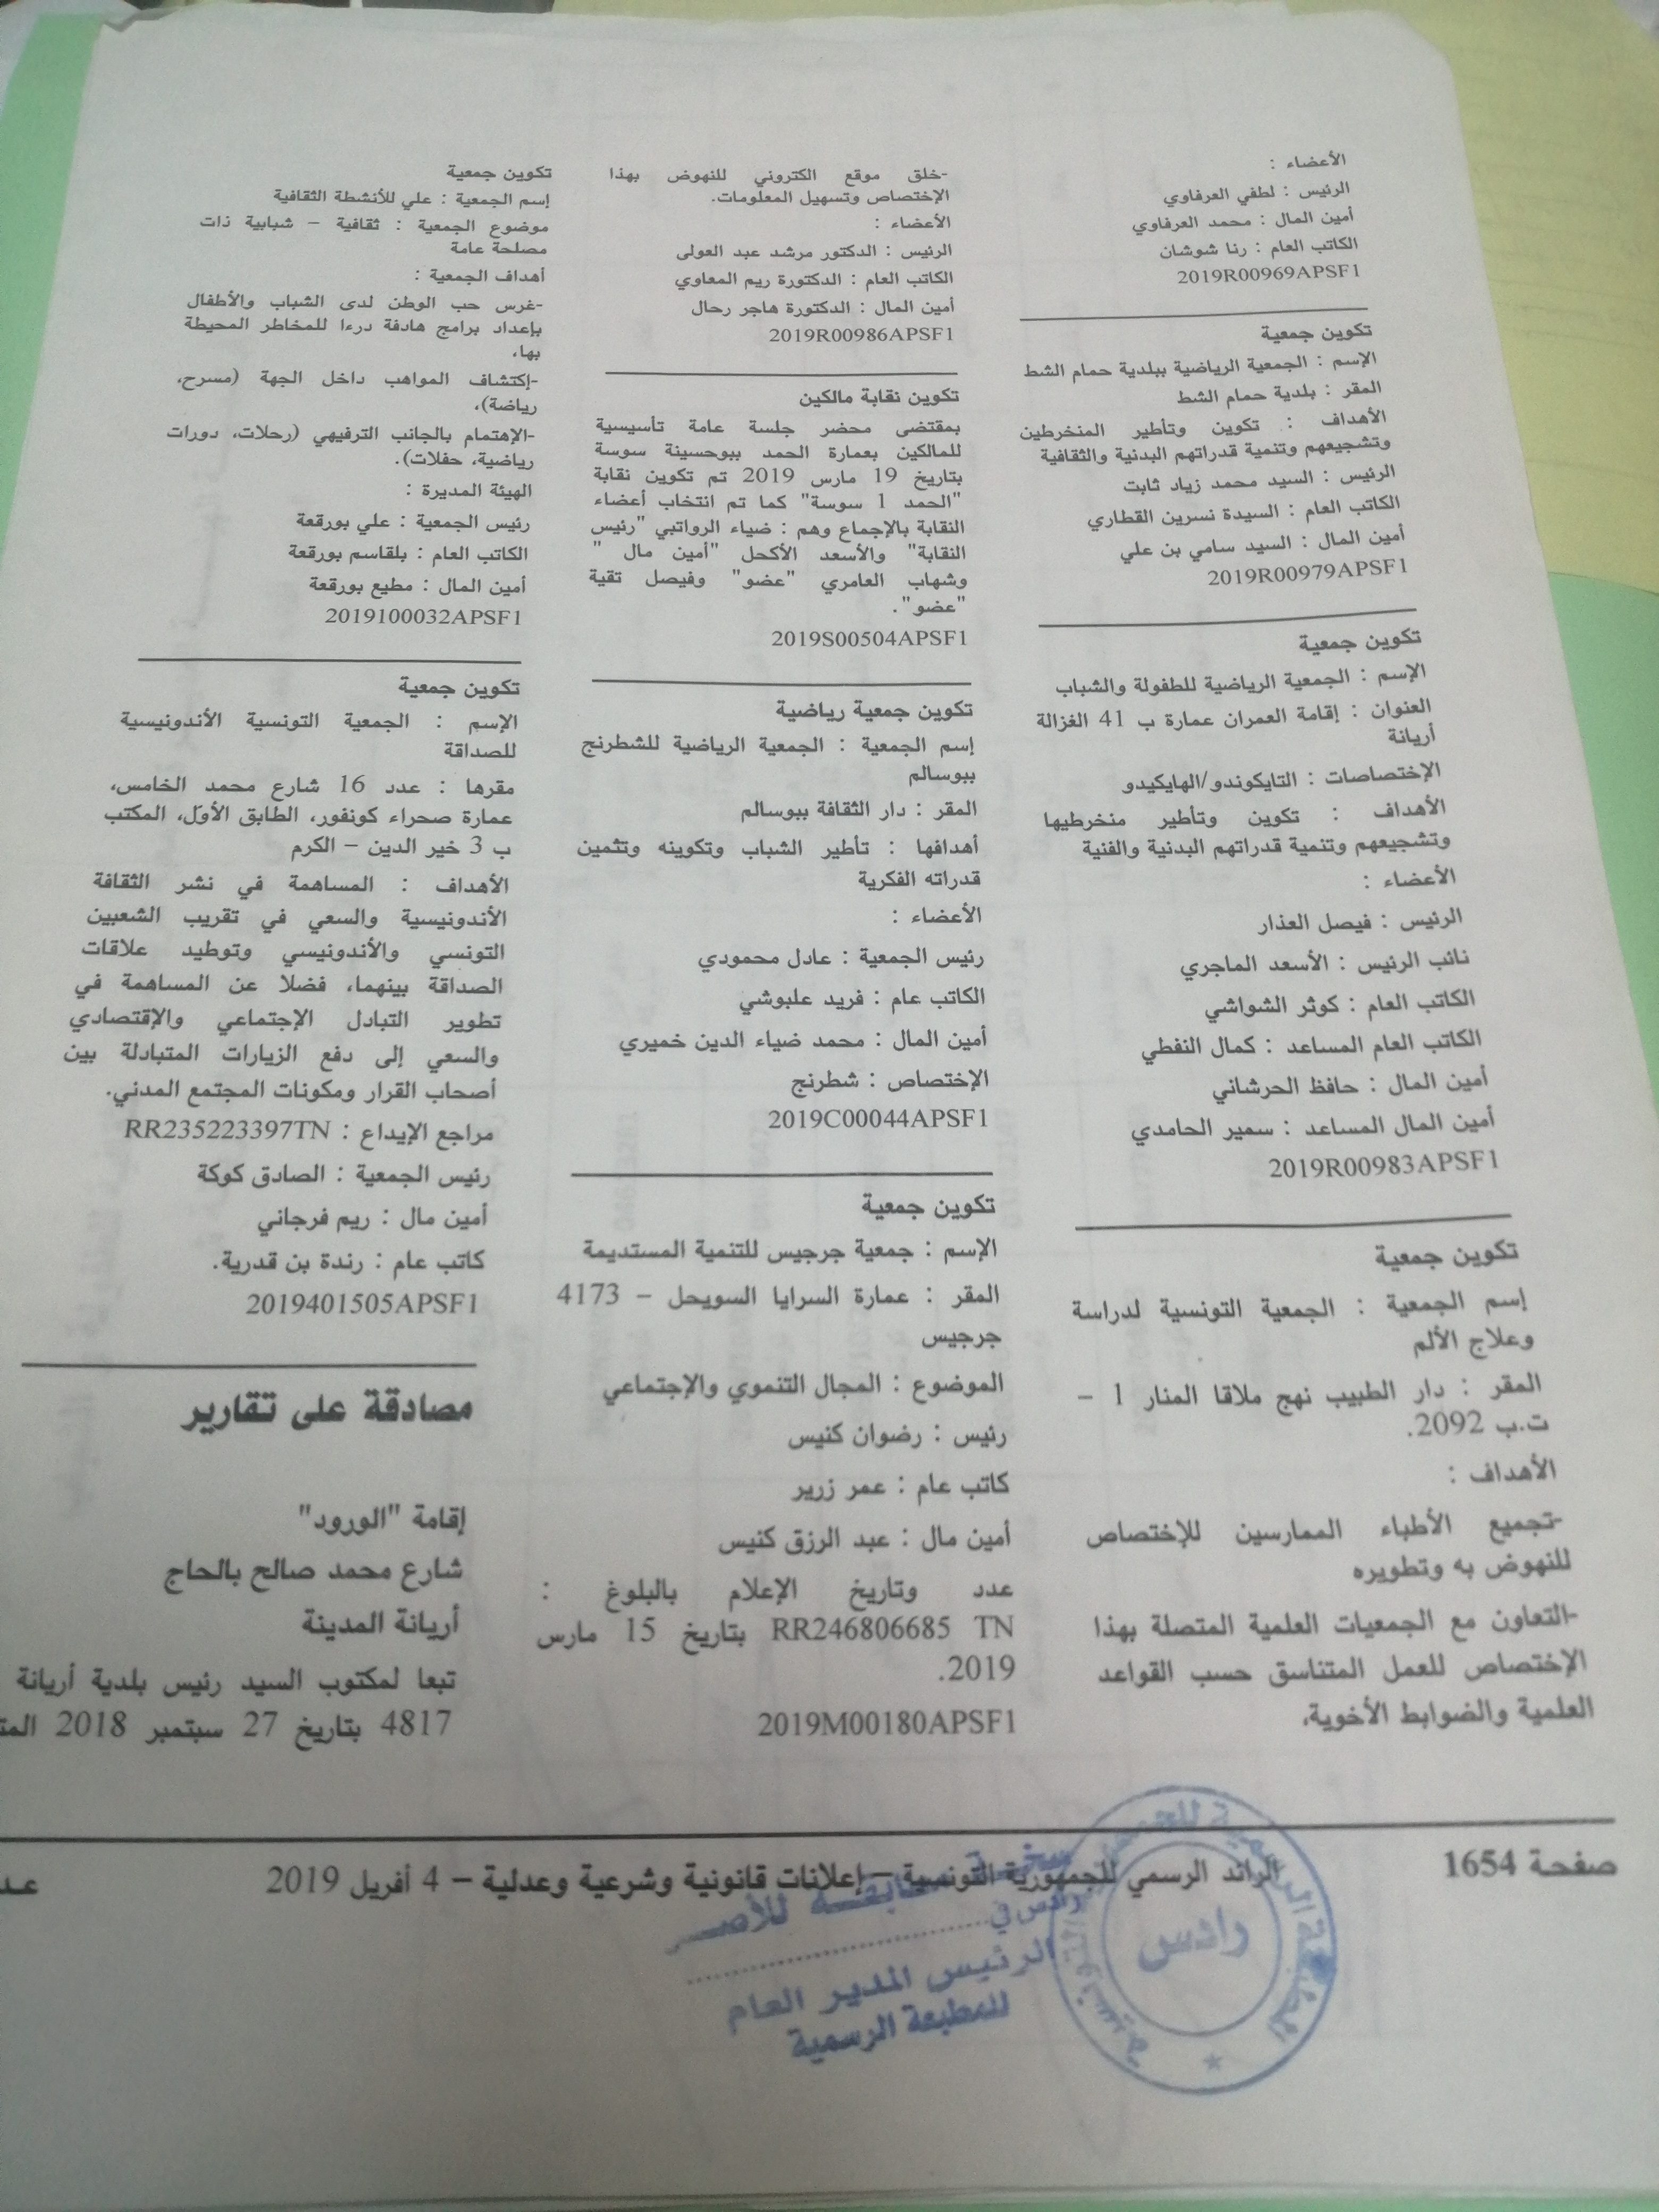 الأعضاء :
الرئيس : لطفي العرفاوي
أمين المال : محمد العرفاوي
الكاتب العام : رنا شوشان
2019R00969APSF1
تكوين جمعية
الإسم : الجمعية الرياضية ببلدية حمام الشط
المقر : بلدية حمام الشط
الأهداف : تكوين وتأطير المنخرطين
وتشجيعهم وتنمية قدراتهم البدنية والثقافية
الرئيس : السيد محمد زياد ثابت
الكاتب العام : السيدة نسرين القطاري
أمين المال : السيد سامي بن علي
2019R00979APSF1
تكوين جمعية
الإسم : الجمعية الرياضية للطفولة والشباب
العنوان : إقامة العمران عمارة ب 41 الغزالة
أريانة
الإختصاصات : التايكوندو/الهايكيدو
الأهداف : تكوين وتأطير منخرطيها
وتشجيعهم وتنمية قدراتهم البدنية والفنية
الأعضاء :
الرئيس : فيصل العذار
نائب الرئيس : الأسعد الماجري
الكاتب العام : كوثر الشواشي
الكاتب العام المساعد : كمال النفطي
أمين المال : حافظ الحرشاني
أمين المال المساعد : سمير الحامدي
2019R00983APSF1
تكوين جمعية
إسم الجمعية : الجمعية التونسية لدراسة
وعلاج الألم
المقر : دار الطبيب نهج ملاقا المنار 1 –
ت.ب 2092.
الأهداف :
-تجميع الأطباء الممارسين للإختصاص
للنهوض به وتطويره
-التعاون مع الجمعيات العلمية المتصلة بهذا
الإختصاص للعمل المتناسق حسب القواعد
العلمية والضوابط الأخوية،
-خلق موقع الكتروني للنهوض بهذا
الإختصاص وتسهيل المعلومات.
الأعضاء :
الرئيس : الدكتور مرشد عبد العولى
الكاتب العام : الدكتورة ريم المعاوي
أمين المال : الدكتورة هاجر رحال
2019R00986APSF1
تكوين نقابة مالكين
بمقتضى محضر جلسة عامة تأسيسية
للمالكين بعمارة الحمد ببوحسينة سوسة
بتاريخ 19 مارس 2019 تم تكوين نقابة
"الحمد 1 سوسة" كما تم انتخاب أعضاء
النقابة بالإجماع وهم : ضياء الرواتبي "رئيس
النقابة" والأسعد الأكحل "أمين مال "
وشهاب العامري "عضو" وفيصل تقية
"عضو".
2019S00504APSF1
تكوين جمعية رياضية
إسم الجمعية : الجمعية الرياضية للشطرنج
ببوسالم
المقر : دار الثقافة ببوسالم
أهدافها : تأطير الشباب وتكوينه وتثمين
قدراته الفكرية
الأعضاء :
رئيس الجمعية : عادل محمودي
الكاتب عام : فريد علبوشي
أمين المال : محمد ضياء الدين خميري
الإختصاص : شطرنج
2019C00044APSF1
تكوين جمعية
الإسم : جمعية جرجيس للتنمية المستديمة
المقر : عمارة السرايا السويحل – 4173
جرجيس
الموضوع : المجال التنموي والإجتماعي
رئيس : رضوان كنيس
كاتب عام : عمر زرير
أمين مال : عبد الرزق كنيس
عدد وتاريخ الإعلام بالبلوغ :
RR246806685 TN بتاريخ 15 مارس
2019.
2019M00180APSF1
تكوين جمعية
إسم الجمعية : علي للأنشطة الثقافية
موضوع الجمعية : ثقافية – شبابية ذات
مصلحة عامة
أهداف الجمعية :
-غرس حب الوطن لدى الشباب والأطفال
بإعداد برامج هادفة درءا للمخاطر المحيطة
بها،
-إكتشاف المواهب داخل الجهة (مسرح،
رياضة)،
-الإهتمام بالجانب الترفيهي (رحلات، دورات
رياضية، حفلات).
الهيئة المديرة :
رئيس الجمعية : علي بورقعة
الكاتب العام : بلقاسم بورقعة
أمين المال : مطيع بورقعة
2019100032APSF1
تكوين جمعية
الإسم : الجمعية التونسية الأندونيسية
للصداقة
مقرها : عدد 16 شارع محمد الخامس،
عمارة صحراء كونفور، الطابق الأول، المكتب
ب 3 خير الدين – الكرم
الأهداف : المساهمة في نشر الثقافة
الأندونيسية والسعي في تقريب الشعبين
التونسي والأندونيسي وتوطيد علاقات
الصداقة بينهما، فضلا عن المساهمة في
تطوير التبادل الإجتماعي والإقتصادي
والسعي إلى دفع الزيارات المتبادلة بين
أصحاب القرار ومكونات المجتمع المدني.
مراجع الإيداع : RR235223397TN
رئيس الجمعية : الصادق كوكة
أمين مال : ريم فرجاني
كاتب عام : رندة بن قدرية.
2019401505APSF1
مصادقة على تقارير
إقامة "الورود"
شارع محمد صالح بالحاج
أريانة المدينة
تبعا لمكتوب السيد رئيس بلدية أريانة
4817 بتاريخ 27 سبتمبر 2018
صفحة 1654
الرائد الرسمي للجمهورية التونسية – إعلانات قانونية وشرعية وعدلية – 4 أفريل 2019
رادس في
الرئيس المدير العام
للمطبعة الرسمية
رادس